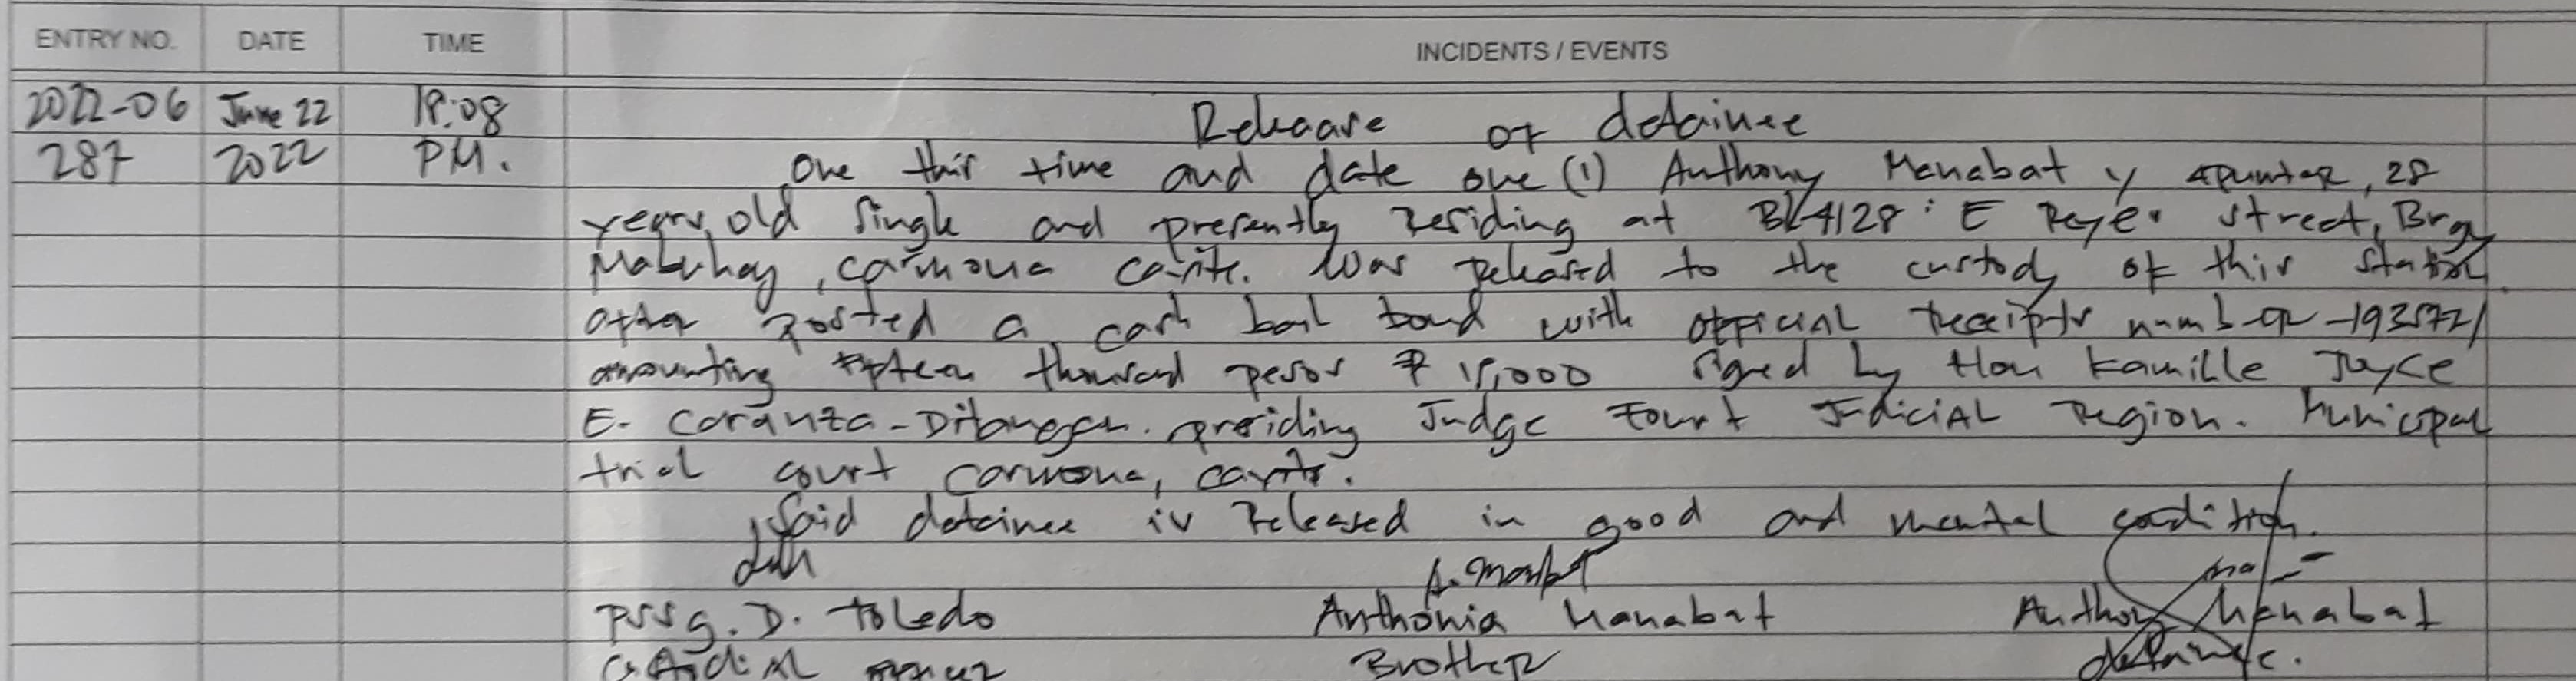 ENTRY NO. DATE TIME INCIDENTS / EVENTS
2022-06 June 22 18:08 Release of detainee
287 2022 PM. One this time and date one (1) Anthony Manabat y , 28
years old single and presently residing at Blk 4128 : E Reyes street, Brgy
Mabuhay, carmona cavite. Was released to the custody of this station
after posted a cash bail bond with official receipts number -1935721
amounting fifteen thousand pesos ₱ 15,000 signed by Hon Kamille Joyce
E. Coranza - presiding Judge Fourt Judicial Region. Municipal
trial court carmona, cavite.
Said detainee is released in good and mental condition.
PSSg. D. Toledo Anthonia Manabat Anthony Manabat
Brother detainee.